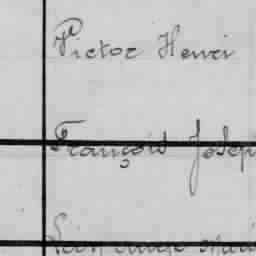 Victor Henri
François Josep